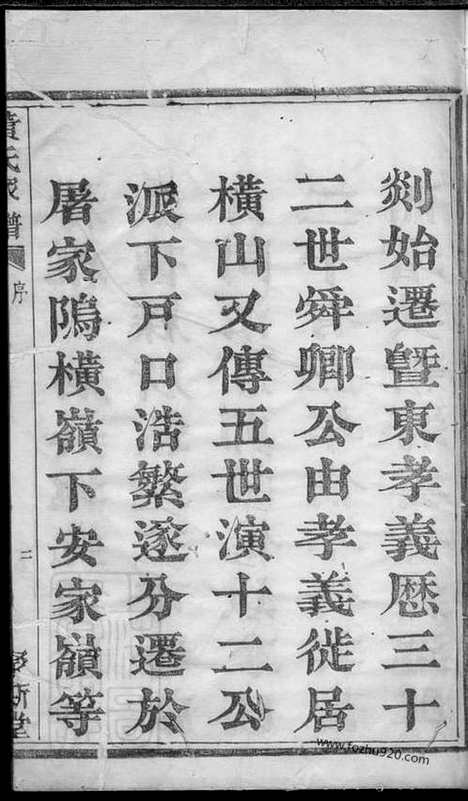 剡始遷暨東孝義歴三十
二世舜卿公由孝義徙居
橫山又傳五世演十二公
派下戸口浩繁遂分遷於
屠家隖橫嶺下安家嶺等
氏家譜
序
二
www.fozhu920.com